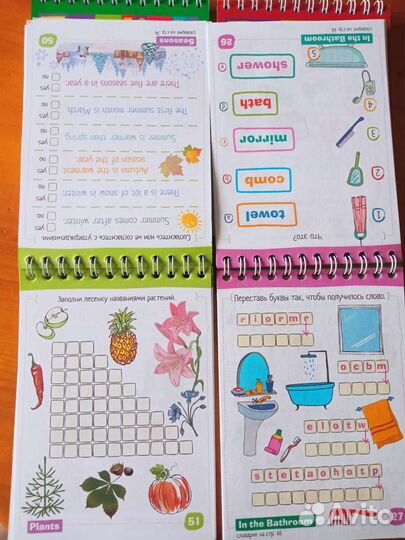 Согласитесь или не согласитесь с утверждениями.
Summer comes after winter.
yes
no
There is a lot of snow in winter.
yes
no
Autumn the warmest
season of the year.
yes
no
Summer is warmer than spring.
yes
no
The first summer month is March.
yes
no
There are five seasons in a year.
yes
no
Seasons
50
Что это?
1
towel
a
2
comb
b
3
mirror
c
4
bath
d
5
shower
e
In the Bathroom
26
Заполни лесенку названиями растений.
Plants
51
Переставь буквы так, чтобы получилось слово.
riormr
ocbm
elotw
stetaohotp
In the Bathroom
словарик на стр. 66
27
Avito